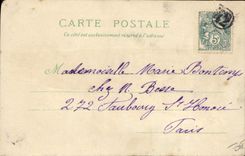 CARTE POSTALE
Ce côté est exclusivement réservé à l'adresse
5
Mademoiselle Marie Bontemy
chez M. Besse
272 Faubourg St Honoré
Paris